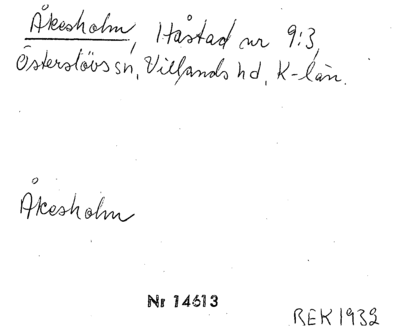 Åkesholm, Håstad nr 9:3,
Österslövs sn, Villands hd, K-län.
Åkesholm
Nr 14613
REK 1932